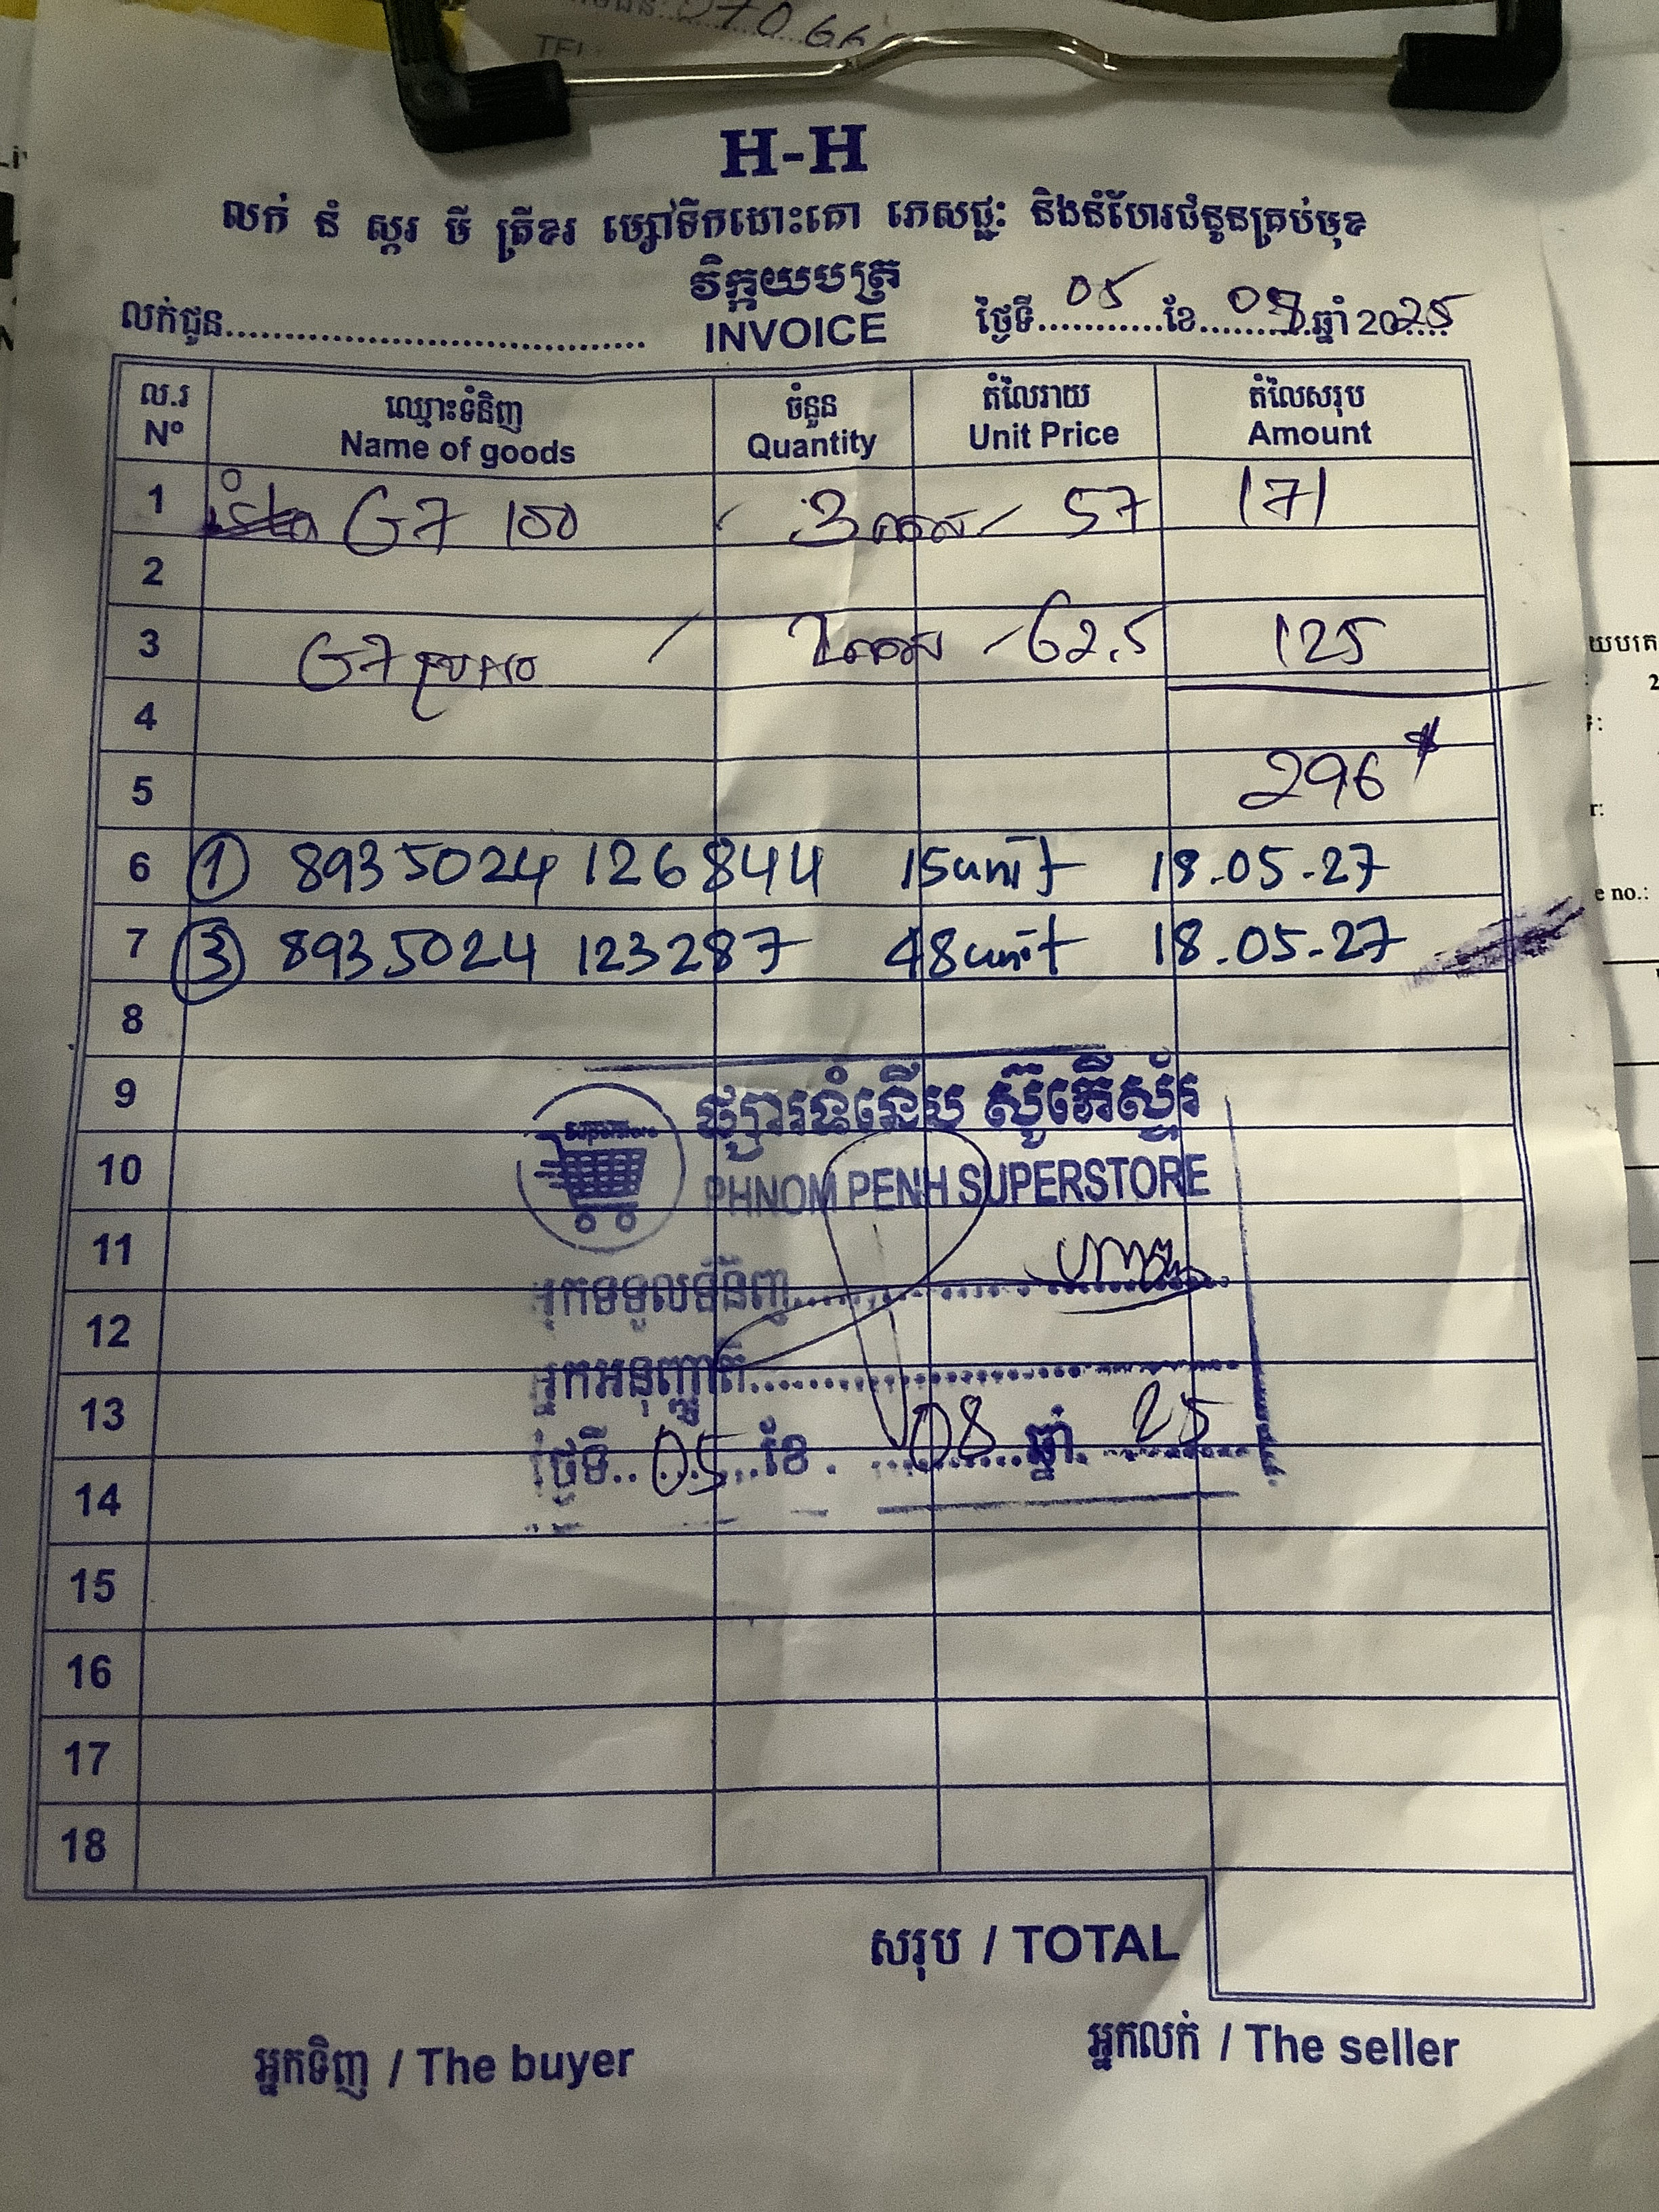 070 66
TEL
H-H
លក់ នំ ស្ករ មី ត្រីខរ ម្សៅទឹកដោះគោ ភេសជ្ជៈ និងនំហែរជំនូនគ្រប់មុខ
វិក្កយបត្រ
INVOICE
លក់ជូន
ថ្ងៃទី 05 ខែ 08 ឆ្នាំ 2025
ល.រ ឈ្មោះទំនិញ ចំនួន តំលៃរាយ តំលៃសរុប
Nº Name of goods Quantity Unit Price Amount
1 G7 100 3 កេស 57 171
2
3 G7 2 កេស 62.5 125
4
5 296 $
6 ① 8935024 126844 15unit 18.05-27
7 ③ 8935024 123287 48unit 18.05-27
8
9 ផ្សារទំនើប ស៊ូភើស្ទ័រ
Superstore
10 PHNOM PENH SUPERSTORE
11 អ្នកទទួលទំនិញ
12
អ្នកអនុញ្ញាតិ
13
ថ្ងៃទី 05 ខែ 08 ឆ្នាំ 25
14
15
16
17
18
សរុប / TOTAL
អ្នកទិញ / The buyer
អ្នកលក់ / The seller
e no.: